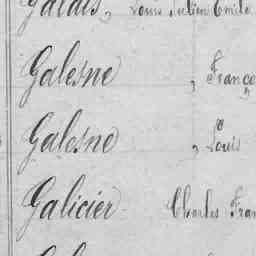 Galais, Louis Julien Emile
Galesne, France
Galesne, Louis
Galicier Charles Fran